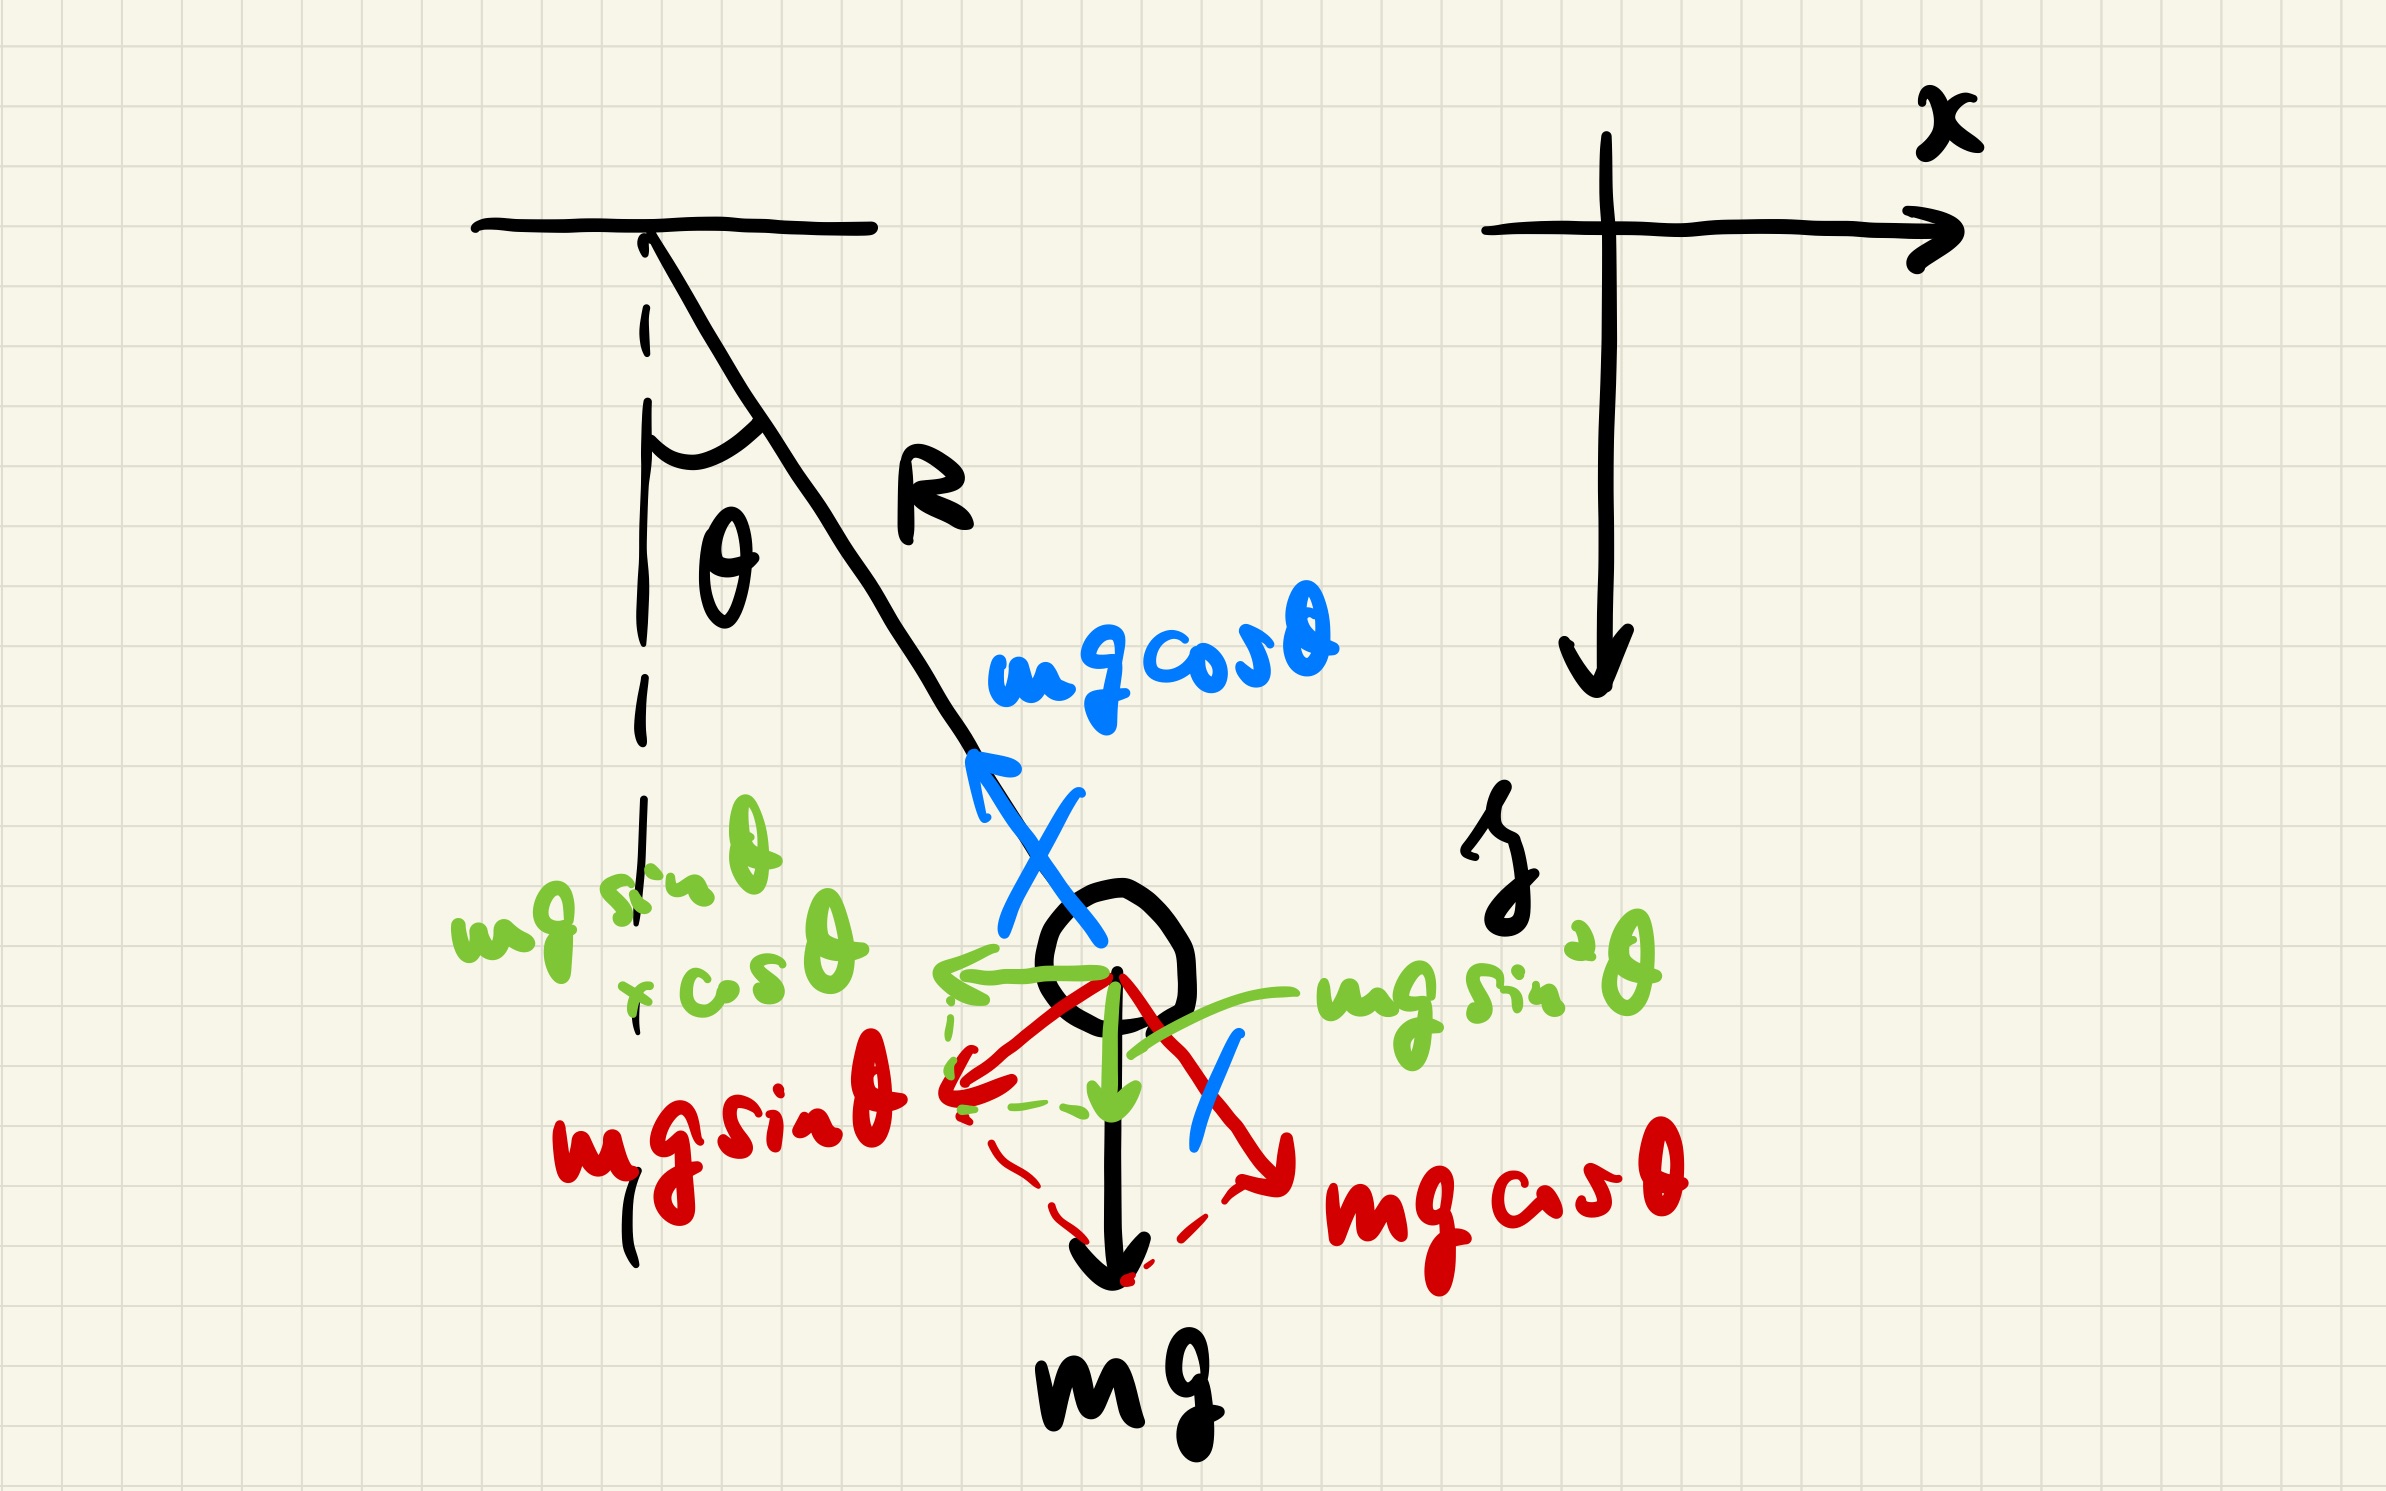 x
θ
R
mg cosθ
z
mg sinθ
× cosθ
mg sin²θ
mg sinθ
mg cosθ
mg